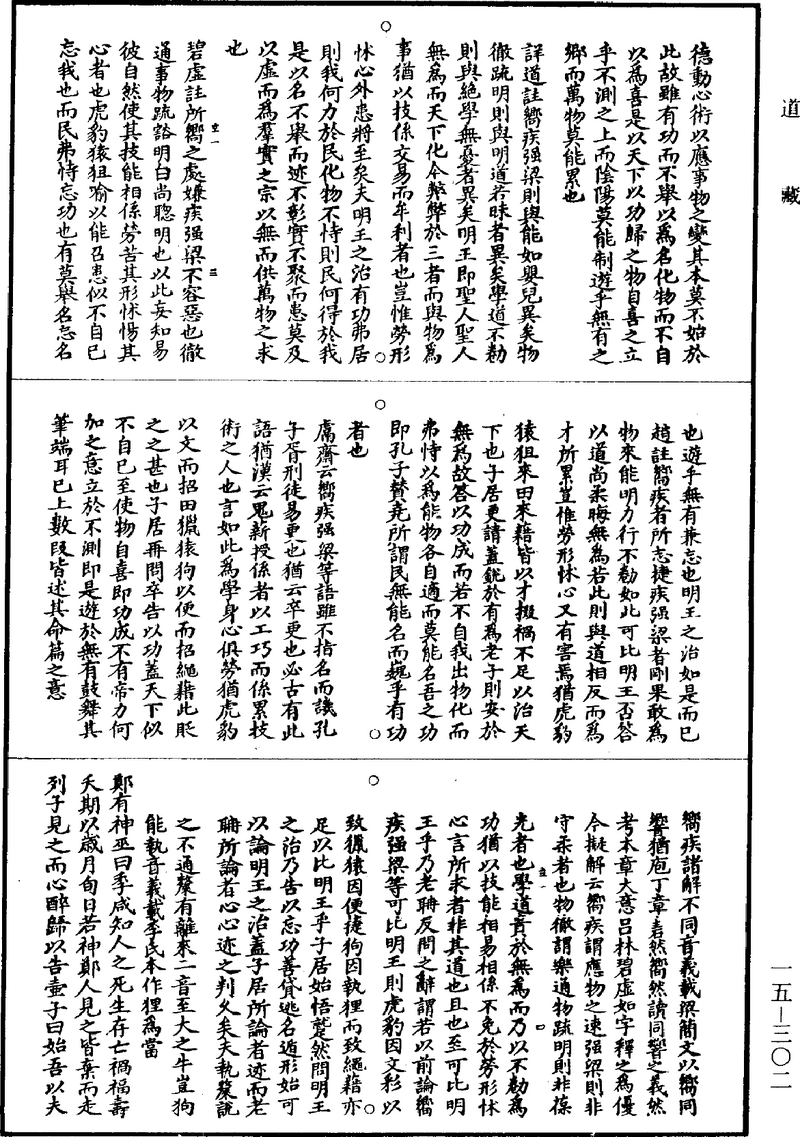 道藏
德動心術以應事物之變其本莫不始於
此故雖有功而不舉以為名化物而不自
以為喜是以天下以功歸之物自喜之立
乎不測之上而陰陽莫能制遊乎無有之
鄉而萬物莫能累也
詳道註嚮疾强梁則與能如嬰兒異矣物
徹疏明則與明道若昧者異矣學道不勌
則與絕學無憂者異矣明王即聖人聖人
無為而天下化今弊弊於三者而與物為
事猶以技係交易而牟利者也豈惟勞形
怵心外患將至矣夫明王之治有功弗居
則我何力於民化物不恃則民何得於我
是以名不舉而迹不彰實不聚而患莫及
以虛而為羣實之宗以無而供萬物之求
也
碧虛註所嚮之處嫌疾强梁不容惡也徹
通事物疏豁明白尚聰明也以此妄知易
彼自然使其技能相係勞苦其形怵惕其
心者也虎豹猿狙喻以能召患似不自已
忘我也而民弗恃忘功也有莫舉名忘名
也遊乎無有兼忘也明王之治如是而已
趙註嚮疾者所志捷疾强梁者剛果敢為
物來能明力行不勌如此可比明王否答
以道尚柔晦無為若此則與道相反而為
才所累豈惟勞形怵心又有害焉猶虎豹
猿狙來田來籍皆以才掇禍不足以治天
下也子居更請蓋銳於有為老子則安於
無為故答以功成而若不自我出物化而
弗恃以為能物各自適而莫能名吾之功
即孔子贊堯所謂民無能名而巍乎有功
者也
鬳齋云嚮疾强梁等語雖不指名而譏孔
子胥刑徒易更也猶云卒更也必古有此
語猶漢云鬼薪授係者以工巧而係累技
術之人也言如此為學身心俱勞猶虎豹
以文而招田獵猿狗以便而招繩藉此貶
之之甚也子居再問卒告以功蓋天下似
不自已至使物自喜即功成不有帝力何
加之意立於不測即是遊於無有鼓舞其
筆端耳已上數段皆述其命篇之意
嚮疾諸解不同音義載梁簡文以嚮同
響猶庖丁章砉然嚮然讀同響之義然
考本章大意呂林碧虛如字釋之為優
今擬解云嚮疾謂應物之速强梁則非
守柔者也物徹謂樂通物疏明則非葆
光者也學道貴於無為而乃以不勌為
功猶以技能相易相係不免於勞形怵
心言所求者非其道也且也至可比明
王乎乃老聃反問之辭謂若以前論嚮
疾强梁等可比明王則虎豹因文彩以
致獵猿因便捷狗因執狸而致繩藉亦
足以比明王乎子居始悟蹵然問明王
之治乃告以忘功善貸逃名遁形始可
以論明王之治蓋子居所論者迹而老
聃所論者心心迹之判久矣夫執斄說
之不通斄有離來二音至大之牛豈狗
能執音義載李氏本作狸為當
鄭有神巫曰季咸知人之死生存亡禍福壽
夭期以歲月旬日若神鄭人見之皆棄而走
列子見之而心醉歸以告壺子曰始吾以夫
一五—三〇二